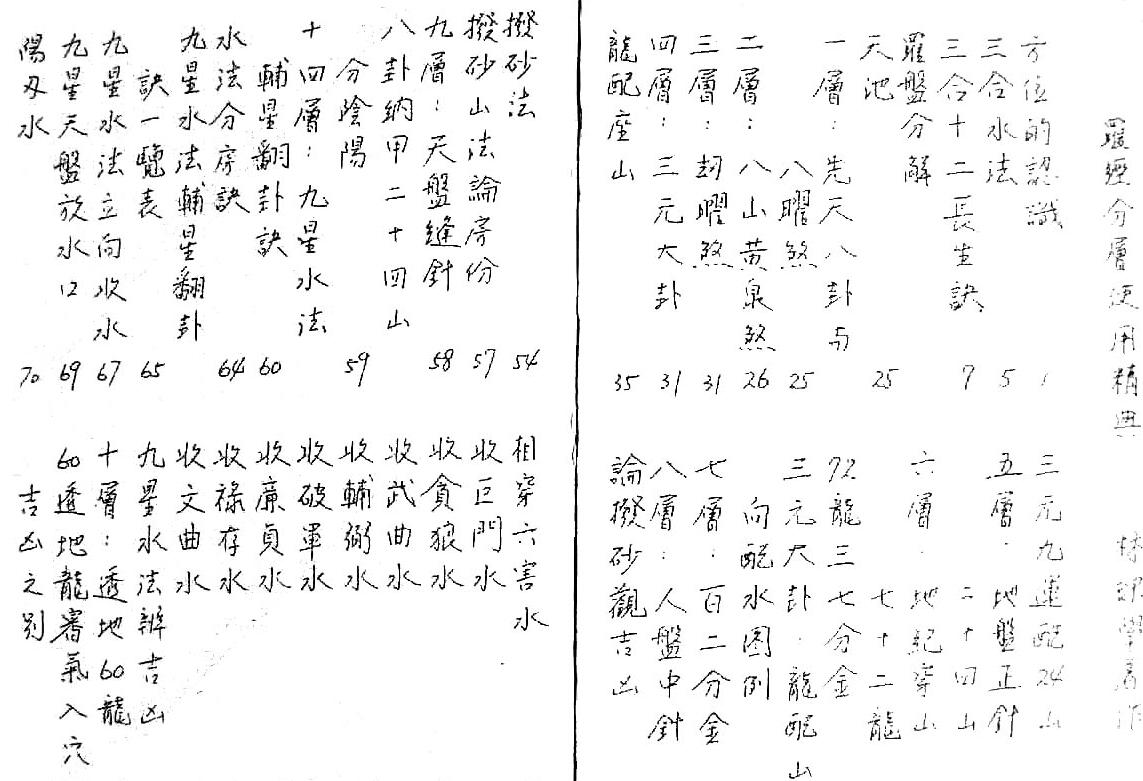 羅經分層使用精典 學著作
方位的認識 1
三合水法 5
三合十二長生訣 7
羅盤分解
天池 25
一層：先天八卦与
八曜煞 25
二層：八山黃泉煞 26
三層：刼曜煞 31
四層：三元大卦 31
龍配座山 35
三元九運配24山
五層．地盤正針
二十四山
六層．地紀穿山
七十二龍
72龍三七分金
三元大卦．龍配山
向配水图例
七層．百二分金
八層．人盤中針
論撥砂觀吉凶
撥砂法 54
撥砂山法論房份 57
九層：天盤縫針 58
八卦納甲二十四山
分陰陽 59
十四層：九星水法
輔星翻卦訣 60
水法分房訣 64
九星水法輔星翻卦
訣一覽表 65
九星水法立向收水 67
九星天盤放水口 69
陽刃水 70
相穿六害水
收巨門水
收貪狼水
收武曲水
收輔弼水
收破軍水
收廉貞水
收祿存水
收文曲水
九星水法辨吉凶
十層：透地60龍
60透地龍審氣入穴
吉凶之别